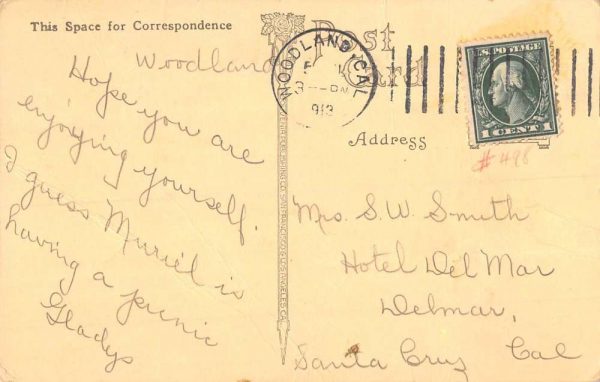 This Space for Correspondence
Woodland
Hope you are
enjoying yourself.
I guess Muriel is
having a picnic
Gladys
Post
Card
WOODLAND, CAL
3-PM
1913
U.S. POSTAGE
1 CENT 1
# 498
Address
Mrs. S. W. Smith
Hotel Del Mar
Delmar,
Santa Cruz Cal
PUBLISHING CO. SAN FRANCISCO & LOS ANGELES, CAL.